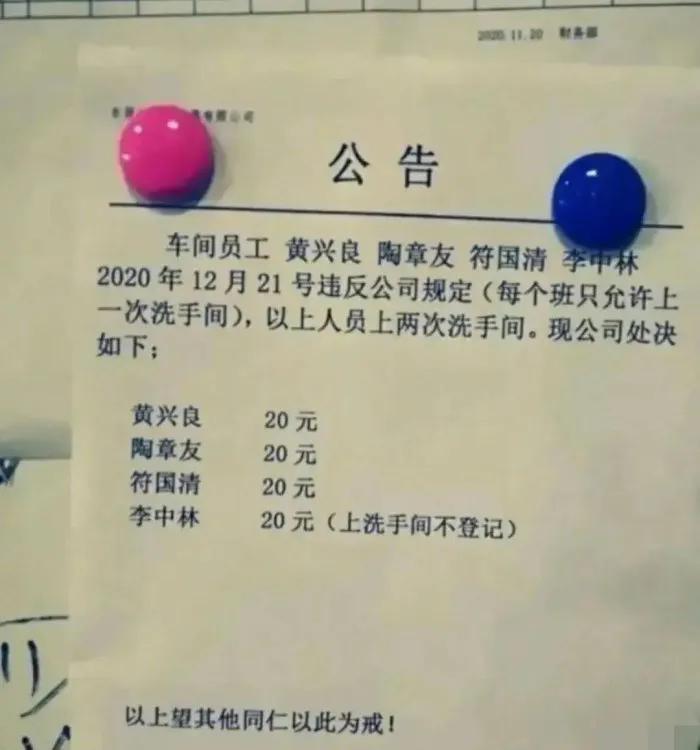 2020.11.20 财务部
有限公司
公告
车间员工 黄兴良 陶章友 符国清 李中林
2020 年 12 月 21 号违反公司规定（每个班只允许上
一次洗手间），以上人员上两次洗手间。现公司处决
如下；
黄兴良 20 元
陶章友 20 元
符国清 20 元
李中林 20 元（上洗手间不登记）
以上望其他同仁以此为戒！